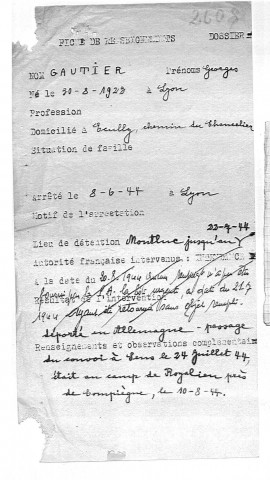 2608
FICHE DE RENSEIGNEMENTS DOSSIER
NOM GAUTIER Prénoms Georges
Né le 30-8-1923 à Lyon
Profession
Domicilié à Ecully, chemin du Chancelier
Situation de famille
Arrêté le 8-6-44 à Lyon
Motif de l'arrestation
22-7-44
Lieu de détention Montluc jusqu'au
Autorité française intervenue : INTENDANCE
à la date du 20.7.1944 n'a pu être
Résultat de l'intervention
1944 ayant été retourné sans objet rempli.
déporté en Allemagne - passage
Renseignements et observations complémentaires
du convoi à Sens le 24 Juillet 44,
était au camp de Royalieu près
de Compiègne, le 10-8-44.